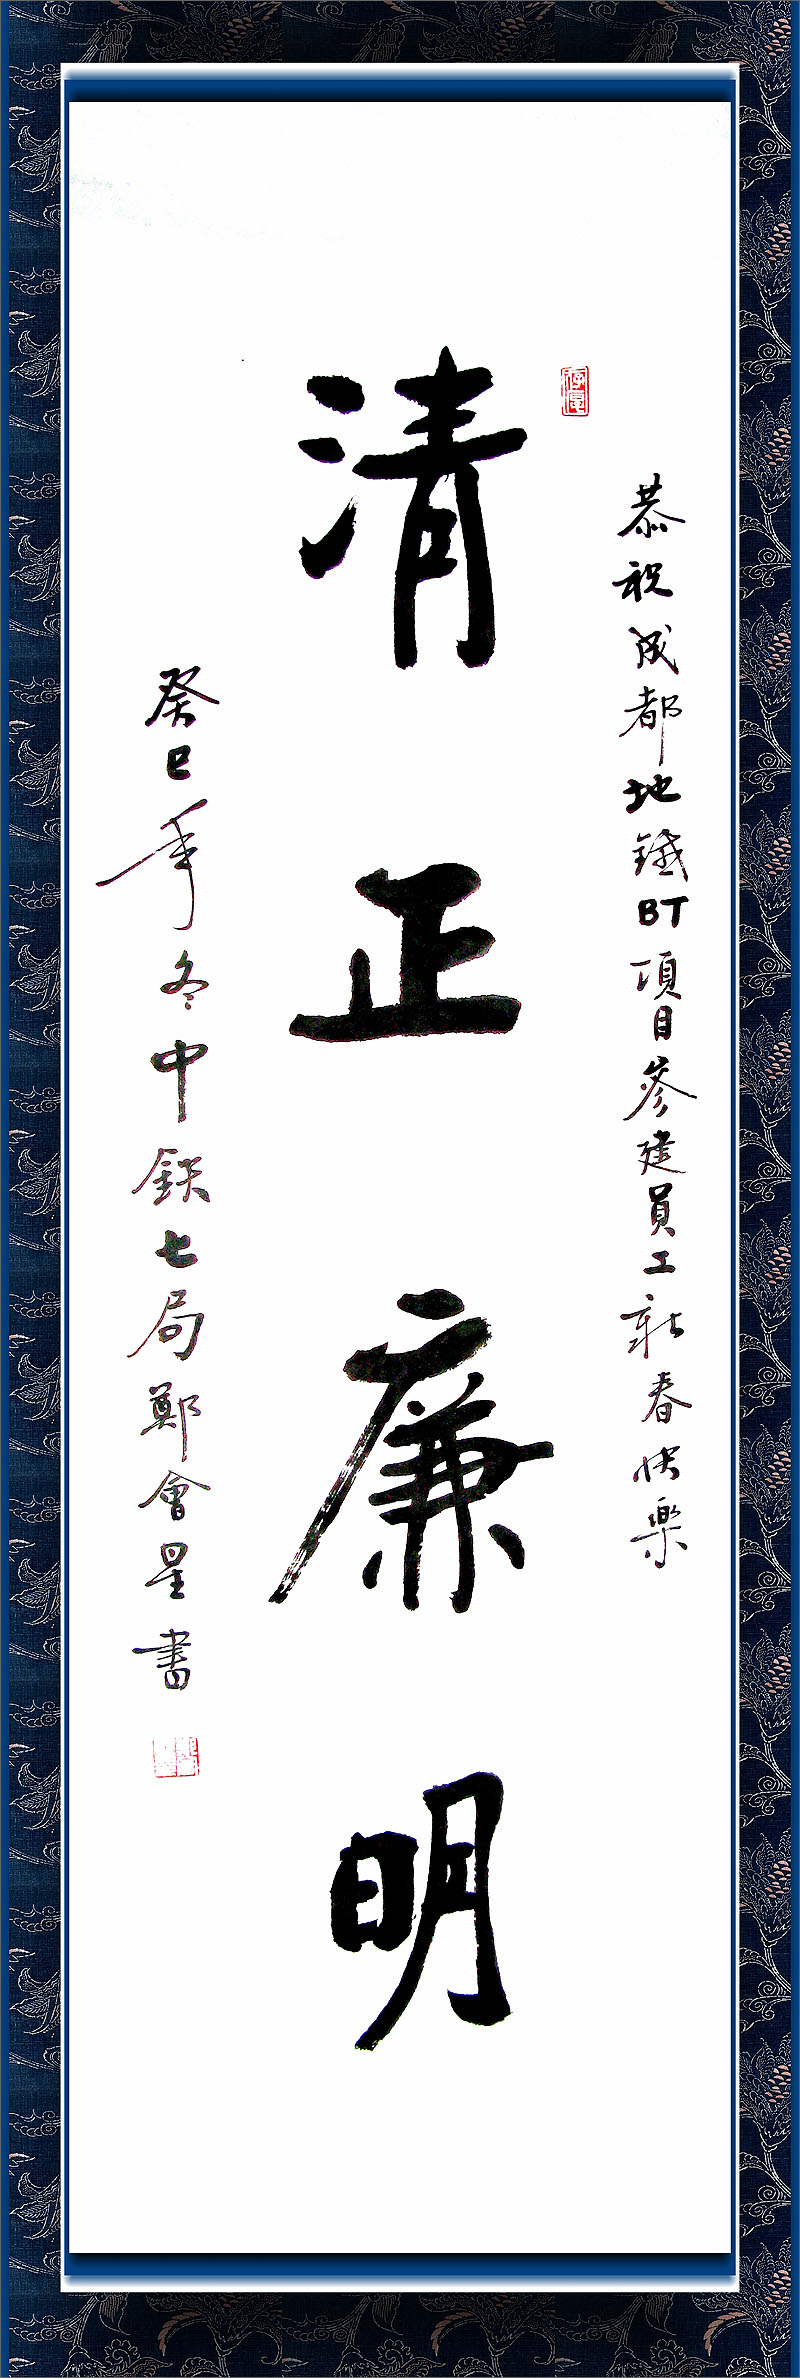 恭祝成都地鐵BT項目參建員工新春快樂
清正廉明
癸巳年冬中鉄七局鄭會星書